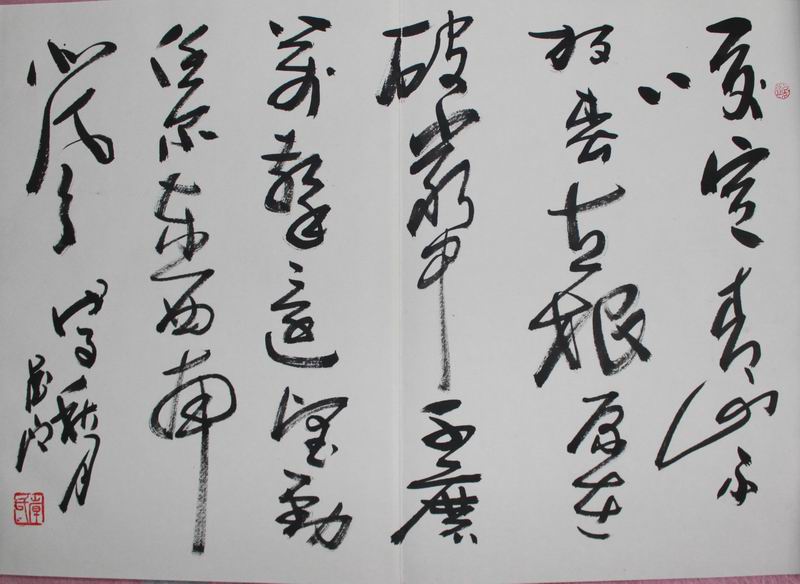 咬定青山不
放松立根原在
破岩中千磨
萬擊還堅勁
任尔东西南
北风
秋月